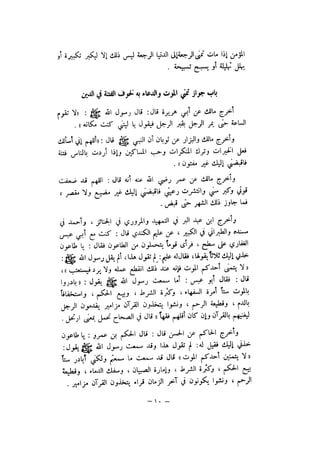 المؤمن إذا مات تمنى الرجعة إلى الدنيا الرجعة ليس ذلك إلا ليكبر تكبيرة أو
يهلل تهليلة أو يسبح تسبيحة .
باب جواز تمني الموت والدعاء به لخوف الفتنة في الدين
أخرج مالك عن أبي هريرة قال: قال رسول الله ﷺ : «لا تقوم
الساعة حتى يمر الرجل بقبر الرجل فيقول يا ليتني كنت مكانه» .
وأخرج مالك والبزار عن ثوبان أن النبي ﷺ قال : «اللهم إني أسألك
فعل الخيرات وترك المنكرات وحب المساكين وإذا أردت بالناس فتنة
فاقبضني إليك غير مفتون» .
وأخرج مالك عن عمر رضي الله عنه أنه قال : اللهم قد ضعفت
قوتي وكبر سني وانتشرت رعيتي فاقبضني إليك غير مضيع ولا مقصر ،
فما جاوز ذلك الشهر حتى قبض .
وأخرج ابن عبد البر في التمهيد والمروزي في الجنائز ، وأحمد في
مسنده والطبراني في الكبير ، عن عليم الكندي قال : كنت مع أبي عبس
الغفاري على سطح ، فرأى قوماً يتحملون من الطاعون فقال : يا طاعون
خذني إليك ثلاثاً يقولها، فقال له عليم: لم تقول هذا، ألم يقل رسول الله ﷺ :
«لا يتمنى أحدكم الموت فإنه عند ذلك انقطع عمله ولا يرد فيستعتب»،
قال : فقال أبو عبس : أما سمعت رسول الله ﷺ يقول : «بادروا
بالموت ستاً أمرة السفهاء ، وكثرة الشرط ، وبيع الحكم ، واستخفافاً
بالدم ، وقطيعة الرحم ، ونشوا يتخذون القرآن مزامير يقدمون الرجل
ليغنيهم بالقرآن وإن كان أقلهم فقهاً» قال في الصحاح تحمل بمعنى ارتحل .
وأخرج الحاكم عن الحسن قال : قال الحكم بن عمرو : يا طاعون
خذني إليك فقيل له: لم تقول هذا وقد سمعت رسول الله ﷺ يقول:
«لا يتمنين أحدكم الموت» قال قد سمعت ما سمعتم ولكني أبادر ستاً
بيع الحكم ، وكثرة الشرط ، وإمارة الصبيان ، وسفك الدماء ، وقطيعة
الرحم ، ونشوا يكونون في آخر الزمان قراء يتخذون القرآن مزامير .
- ١٠ -